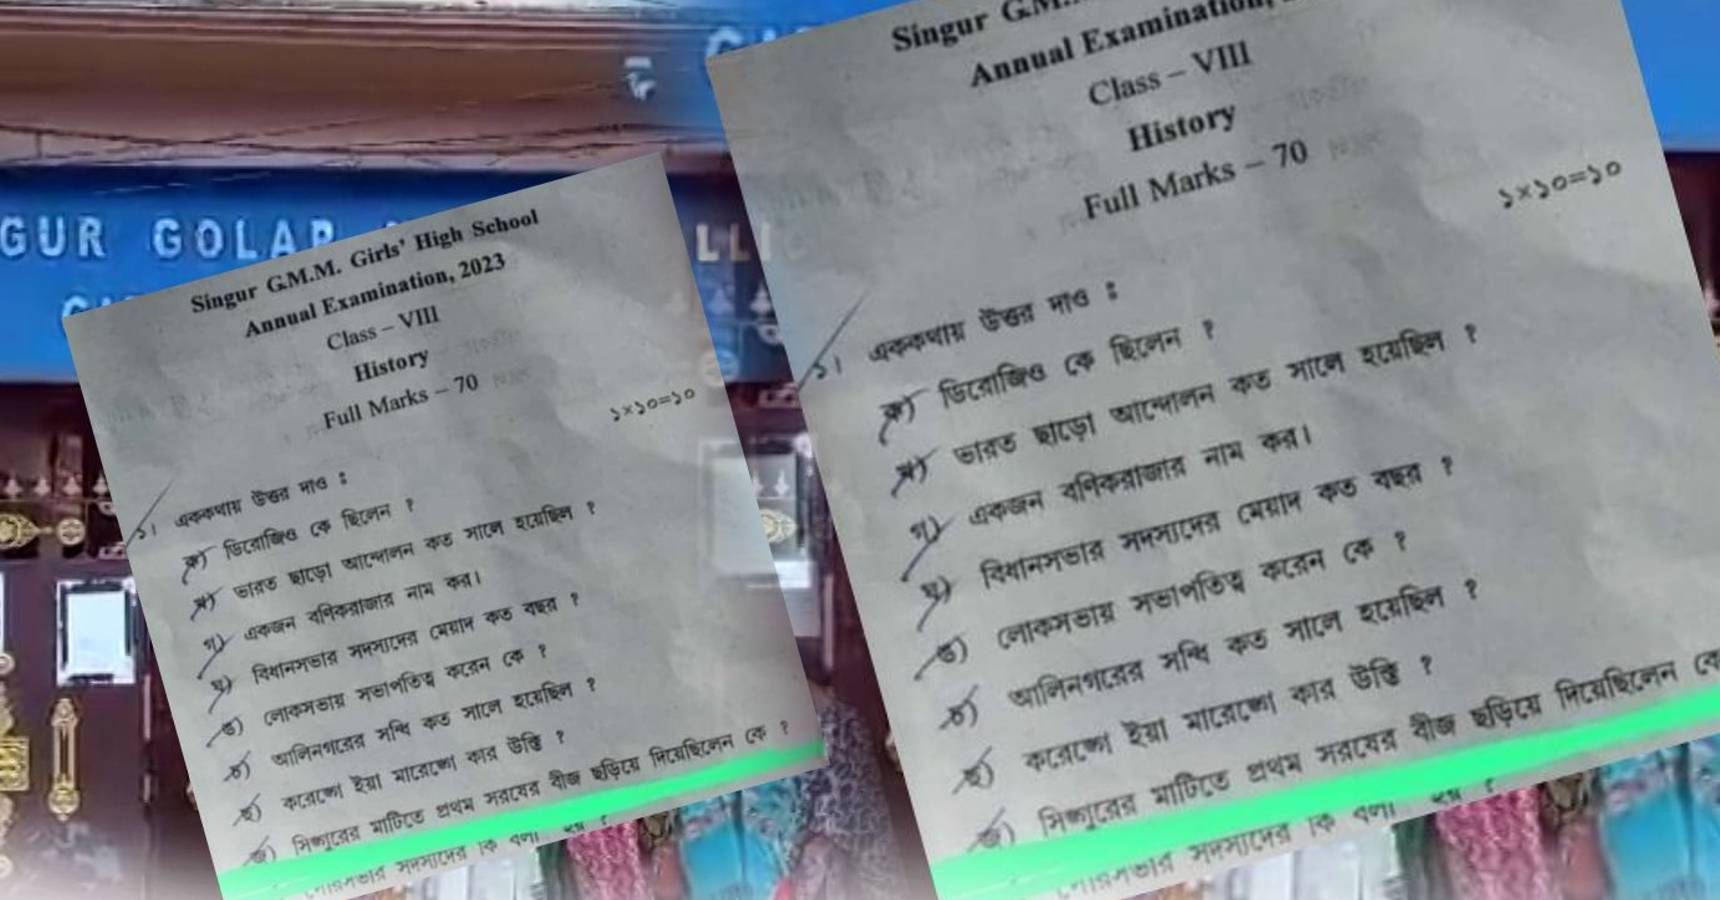 GUR GOLAP
LLIC
Singur G.M.M. Girls' High School
Annual Examination, 2023
Class – VIII
History
Full Marks – 70
১×১০=১০
১। এককথায় উত্তর দাও :
ক) ডিরোজিও কে ছিলেন ?
খ) ভারত ছাড়ো আন্দোলন কত সালে হয়েছিল ?
গ) একজন বণিকরাজার নাম কর।
ঘ) বিধানসভার সদস্যদের মেয়াদ কত বছর ?
ঙ) লোকসভায় সভাপতিত্ব করেন কে ?
চ) আলিনগরের সন্ধি কত সালে হয়েছিল ?
ছ) করেঙ্গে ইয়া মারেঙ্গে কার উক্তি ?
জ) সিঙ্গুরের মাটিতে প্রথম সরষের বীজ ছড়িয়ে দিয়েছিলেন কে ?
সদস্যদের কি বলা হয় ?
Singur
Annual Examination,
Class – VIII
History
Full Marks – 70
১×১০=১০
১। এককথায় উত্তর দাও :
ক) ডিরোজিও কে ছিলেন ?
খ) ভারত ছাড়ো আন্দোলন কত সালে হয়েছিল ?
গ) একজন বণিকরাজার নাম কর।
ঘ) বিধানসভার সদস্যদের মেয়াদ কত বছর ?
ঙ) লোকসভায় সভাপতিত্ব করেন কে ?
চ) আলিনগরের সন্ধি কত সালে হয়েছিল ?
ছ) করেঙ্গে ইয়া মারেঙ্গে কার উক্তি ?
জ) সিঙ্গুরের মাটিতে প্রথম সরষের বীজ ছড়িয়ে দিয়েছিলেন কে
সদস্যদের কি বলা হয় ?